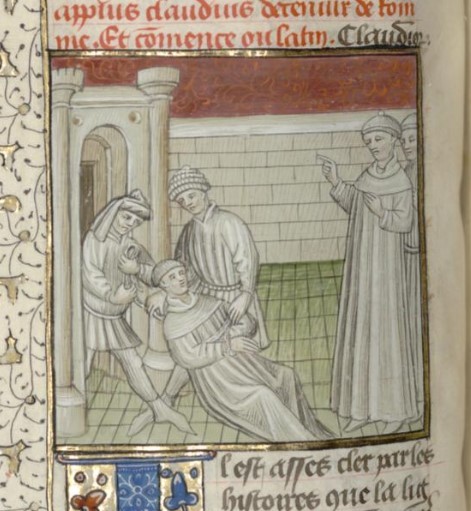 appius claudius decenuir de rom
me. Et comence ou latin. Claudi
l est asses cler par les
histoires que la lig